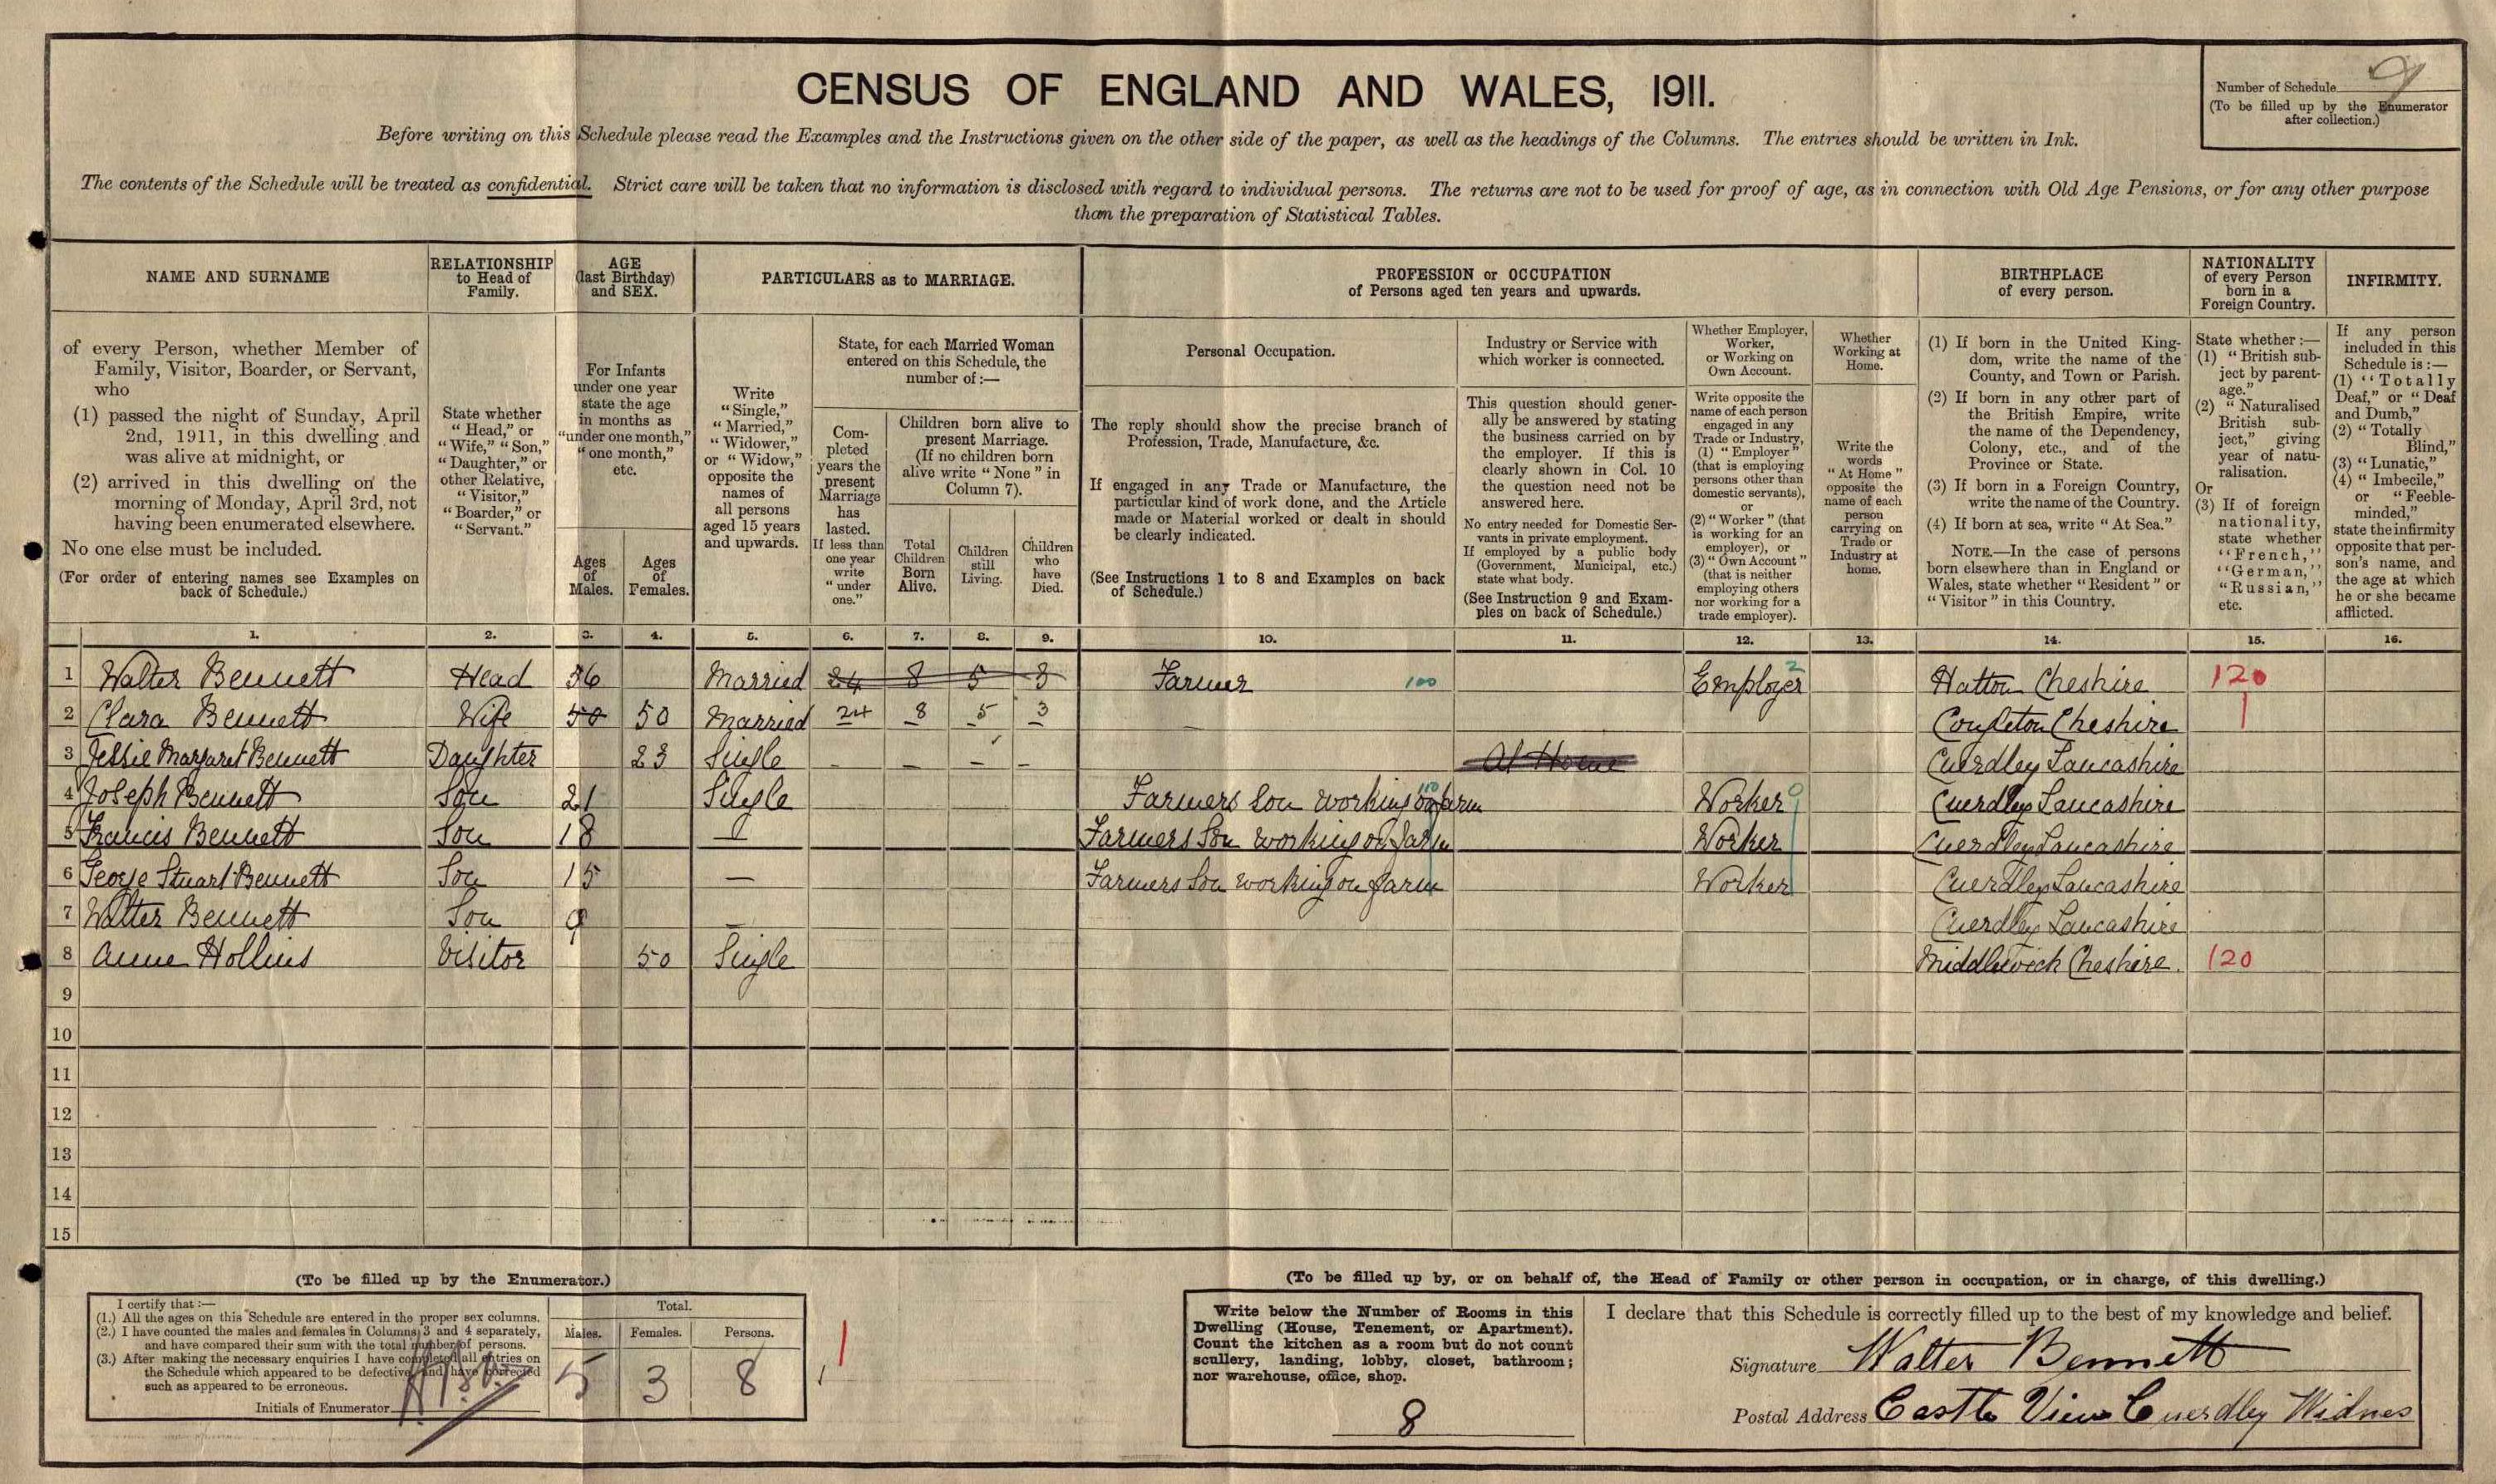 CENSUS OF ENGLAND AND WALES, 1911.
Number of Schedule 9
(To be filled up by the Enumerator
after collection.)
Before writing on this Schedule please read the Examples and the Instructions given on the other side of the paper, as well as the headings of the Columns. The entries should be written in Ink.
The contents of the Schedule will be treated as confidential. Strict care will be taken that no information is disclosed with regard to individual persons. The returns are not to be used for proof of age, as in connection with Old Age Pensions, or for any other purpose
than the preparation of Statistical Tables.
NAME AND SURNAME
of every Person, whether Member of
Family, Visitor, Boarder, or Servant,
who
(1) passed the night of Sunday, April
2nd, 1911, in this dwelling and
was alive at midnight, or
(2) arrived in this dwelling on the
morning of Monday, April 3rd, not
having been enumerated elsewhere.
No one else must be included.
(For order of entering names see Examples on
back of Schedule.)
RELATIONSHIP
to Head of
Family.
State whether
"Head," or
"Wife," "Son,"
"Daughter," or
other Relative,
"Visitor,"
"Boarder," or
"Servant."
AGE
(last Birthday)
and SEX.
For Infants
under one year
state the age
in months as
"under one month,"
"one month,"
etc.
Ages
of
Males.
Ages
of
Females.
PARTICULARS as to MARRIAGE.
Write
"Single,"
"Married,"
"Widower,"
or "Widow,"
opposite the
names of
all persons
aged 15 years
and upwards.
State, for each Married Woman
entered on this Schedule, the
number of :—
Com-
pleted
years the
present
Marriage
has
lasted.
If less than
one year
write
"under
one."
Children born alive to
present Marriage.
(If no children born
alive write "None" in
Column 7).
Total
Children
Born
Alive.
Children
still
Living.
Children
who
have
Died.
PROFESSION or OCCUPATION
of Persons aged ten years and upwards.
Personal Occupation.
The reply should show the precise branch of
Profession, Trade, Manufacture, &c.
If engaged in any Trade or Manufacture, the
particular kind of work done, and the Article
made or Material worked or dealt in should
be clearly indicated.
(See Instructions 1 to 8 and Examples on back
of Schedule.)
Industry or Service with
which worker is connected.
This question should gener-
ally be answered by stating
the business carried on by
the employer. If this is
clearly shown in Col. 10
the question need not be
answered here.
No entry needed for Domestic Ser-
vants in private employment.
If employed by a public body
(Government, Municipal, etc.)
state what body.
(See Instruction 9 and Exam-
ples on back of Schedule.)
Whether Employer,
Worker,
or Working on
Own Account.
Write opposite the
name of each person
engaged in any
Trade or Industry,
(1) "Employer"
(that is employing
persons other than
domestic servants),
or
(2) "Worker" (that
is working for an
employer), or
(3) "Own Account"
(that is neither
employing others
nor working for a
trade employer).
Whether
Working at
Home.
Write the
words
"At Home"
opposite the
name of each
person
carrying on
Trade or
Industry at
home.
BIRTHPLACE
of every person.
(1) If born in the United King-
dom, write the name of the
County, and Town or Parish.
(2) If born in any other part of
the British Empire, write
the name of the Dependency,
Colony, etc., and of the
Province or State.
(3) If born in a Foreign Country,
write the name of the Country.
(4) If born at sea, write "At Sea."
NOTE.—In the case of persons
born elsewhere than in England or
Wales, state whether "Resident" or
"Visitor" in this Country.
NATIONALITY
of every Person
born in a
Foreign Country.
State whether :—
(1) "British sub-
ject by parent-
age."
(2) "Naturalised
British sub-
ject," giving
year of natu-
ralisation.
Or
(3) If of foreign
nationality,
state whether
"French,"
"German,"
"Russian,"
etc.
INFIRMITY.
If any person
included in this
Schedule is :—
(1) "Totally
Deaf," or "Deaf
and Dumb,"
(2) "Totally
Blind,"
(3) "Lunatic,"
(4) "Imbecile,"
or "Feeble-
minded,"
state the infirmity
opposite that per-
son's name, and
the age at which
he or she became
afflicted.
1. 2. 3. 4. 5. 6. 7. 8. 9. 10. 11. 12. 13. 14. 15. 16.
1 Walter Bennett Head 56 Married 24 8 5 3 Farmer 100 Employer 2 Hatton Cheshire 120
2 Clara Bennett Wife 50 50 Married 24 8 5 3 — Congleton Cheshire 1
3 Jessie Margaret Bennett Daughter 23 Single – – – – At Home Cuerdley Lancashire
4 Joseph Bennett Son 21 Single Farmers Son working on farm 110 Worker 0 Cuerdley Lancashire
5 Francis Bennett Son 18 — Farmers Son working on farm Worker Cuerdley Lancashire
6 George Stuart Bennett Son 15 — Farmers Son working on farm Worker Cuerdley Lancashire
7 Walter Bennett Son 9 — Cuerdley Lancashire
8 Anne Hollins Visitor 50 Single Middlewich Cheshire. 120
9
10
11
12
13
14
15
(To be filled up by the Enumerator.)
I certify that :—
(1.) All the ages on this Schedule are entered in the proper sex columns.
(2.) I have counted the males and females in Columns 3 and 4 separately,
and have compared their sum with the total number of persons.
(3.) After making the necessary enquiries I have completed all entries on
the Schedule which appeared to be defective, and have corrected
such as appeared to be erroneous.
Initials of Enumerator
Total.
Males. Females. Persons.
5 3 8
1
(To be filled up by, or on behalf of, the Head of Family or other person in occupation, or in charge, of this dwelling.)
Write below the Number of Rooms in this
Dwelling (House, Tenement, or Apartment).
Count the kitchen as a room but do not count
scullery, landing, lobby, closet, bathroom;
nor warehouse, office, shop.
8
I declare that this Schedule is correctly filled up to the best of my knowledge and belief.
Signature Walter Bennett
Postal Address Castle View Cuerdley Widnes